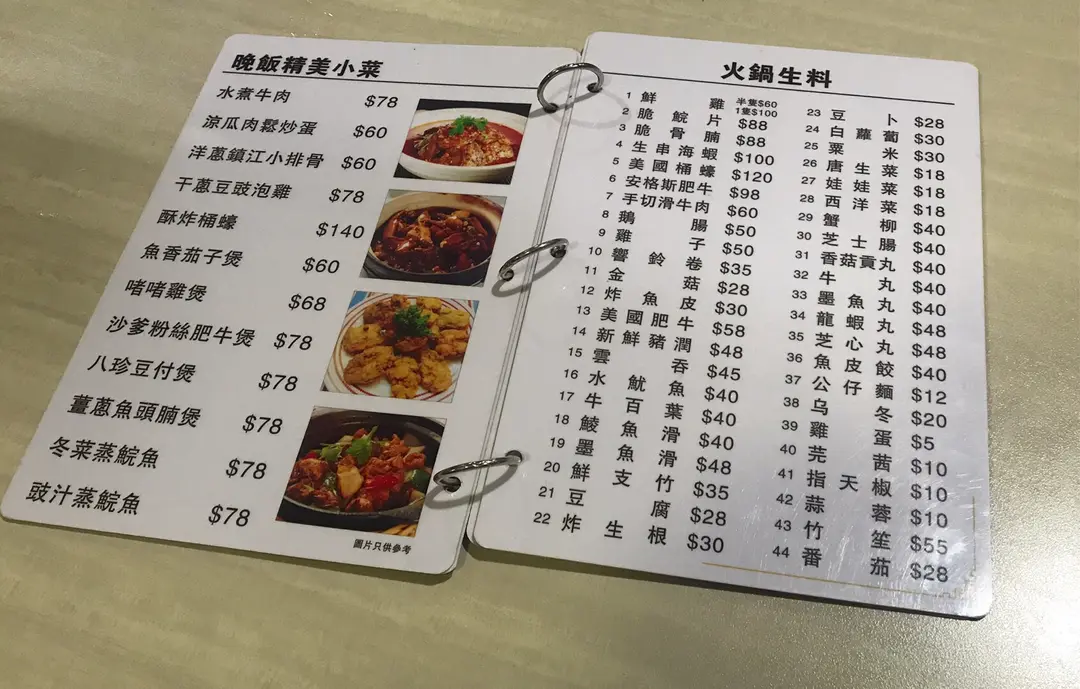 晚飯精美小菜
水煮牛肉 $78
涼瓜肉鬆炒蛋 $60
洋蔥鎮江小排骨 $60
干蔥豆豉雞 $78
酥炸桶蠔 $140
魚香茄子煲 $60
啫啫雞煲 $68
沙爹粉絲肥牛煲 $78
八珍豆付煲 $78
薑蔥魚頭腩煲 $78
冬菜蒸鯇魚 $78
豉汁蒸鯇魚 $78
圖片只供參考
火鍋生料
1 鮮雞 半隻$60 1隻$100
2 脆鯇片 $88
3 脆骨腩 $88
4 生串海蝦 $100
5 美國桶蠔 $120
6 安格斯肥牛 $98
7 手切滑牛肉 $60
8 鵝腸 $50
9 雞子 $50
10 響鈴卷 $35
11 金菇 $28
12 炸魚皮 $30
13 美國肥牛 $58
14 新鮮豬潤 $48
15 雲吞 $45
16 水魷魚 $40
17 牛百葉 $40
18 鯪魚滑 $40
19 墨魚滑 $48
20 鮮支竹 $35
21 豆腐 $28
22 炸生根 $30
23 豆卜 $28
24 白蘿蔔 $30
25 粟米 $30
26 唐生菜 $18
27 娃娃菜 $18
28 西洋菜 $18
29 蟹柳 $40
30 芝士腸 $40
31 香菇貢丸 $40
32 牛丸 $40
33 墨魚丸 $40
34 龍蝦丸 $48
35 芝心丸 $48
36 魚皮餃 $40
37 公仔麵 $12
38 烏冬 $20
39 雞蛋 $5
40 芫茜 $10
41 指天椒 $10
42 蒜蓉 $10
43 竹笙 $55
44 番茄 $28